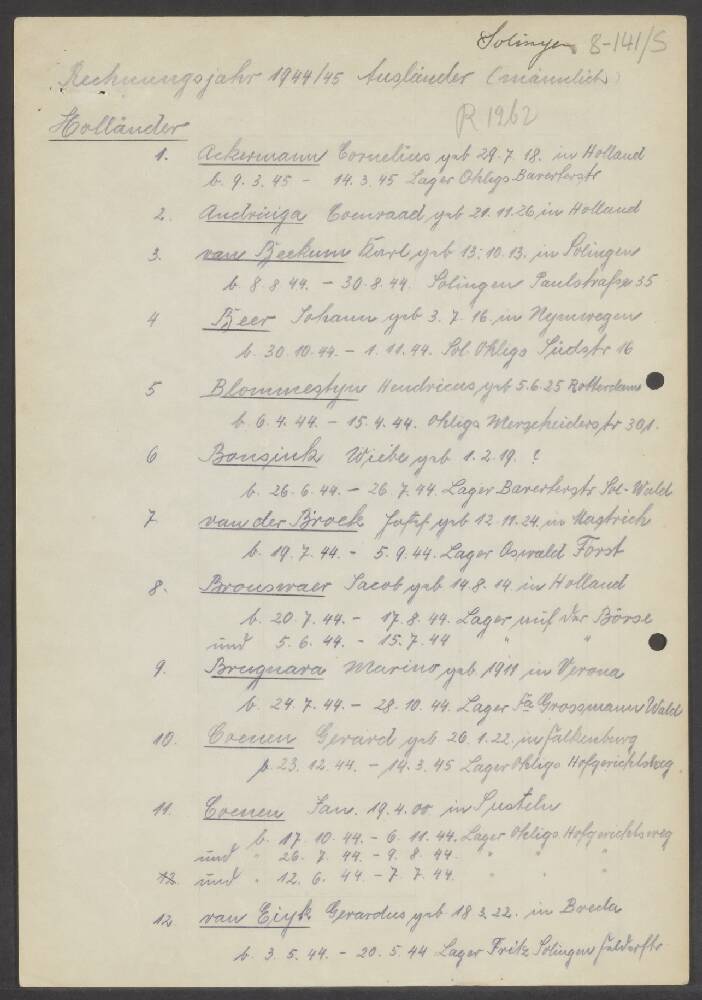 Solingen 8-141/S
Rechnungsjahr 1944/45 Ausländer (männlich)
R 1962
Holländer
1. Ackermann Cornelius geb 29.7.18. in Holland
b. 9.3.45 - 14.3.45 Lager Ohligs Baverterstr
2. Andringa Coenraad geb 21.11.26 in Holland
3. van Beekum Karl geb 13.10.13. in Solingen
b. 8.8.44. - 30.8.44. Solingen Paulstraße 35
4 Beer Johann geb 3.7.16 in Nymwegen
b. 30.10.44. - 1.11.44. Sol. Ohligs Südstr 16
5 Blommestyn Hendricus geb 5.6.25 Rotterdam
b. 6.4.44. - 15.4.44. Ohligs Merscheiderstr 301.
6 Bonsink Wiebe geb 1.2.19. ?
b. 26.6.44. - 26.7.44. Lager Baverterstr Sol-Wald
7. van der Broek Josef geb 12.11.24. in Mastrich
b. 19.7.44. - 5.9.44. Lager Oswald Forst
8. Brouswaer Jacob geb 14.8.14. in Holland
b. 20.7.44. - 17.8.44. Lager auf der Börse
und 5.6.44. - 15.7.44 " "
9. Brugnara Marino geb 1911 in Verona
b. 24.7.44. - 28.10.44. Lager Fa Grossmann Wald
10. Coenen Gerard geb 20.1.22. in Falkenburg
b. 23.12.44. - 14.3.45 Lager Ohligs Hofgerichtsweg
11. Coenen Jan. 19.4.00 in Susteln
b. 17.10.44. - 6.11.44. Lager Ohligs Hofgerichtsweg
und " 26.7.44. - 9.8.44. " " "
12 und " 12.6.44 - 7.7.44. " " "
12. van Eiyk Gerardus geb 18.3.22. in Breda
b. 3.5.44. - 20.5.44 Lager Fritz Solingen Felderstr